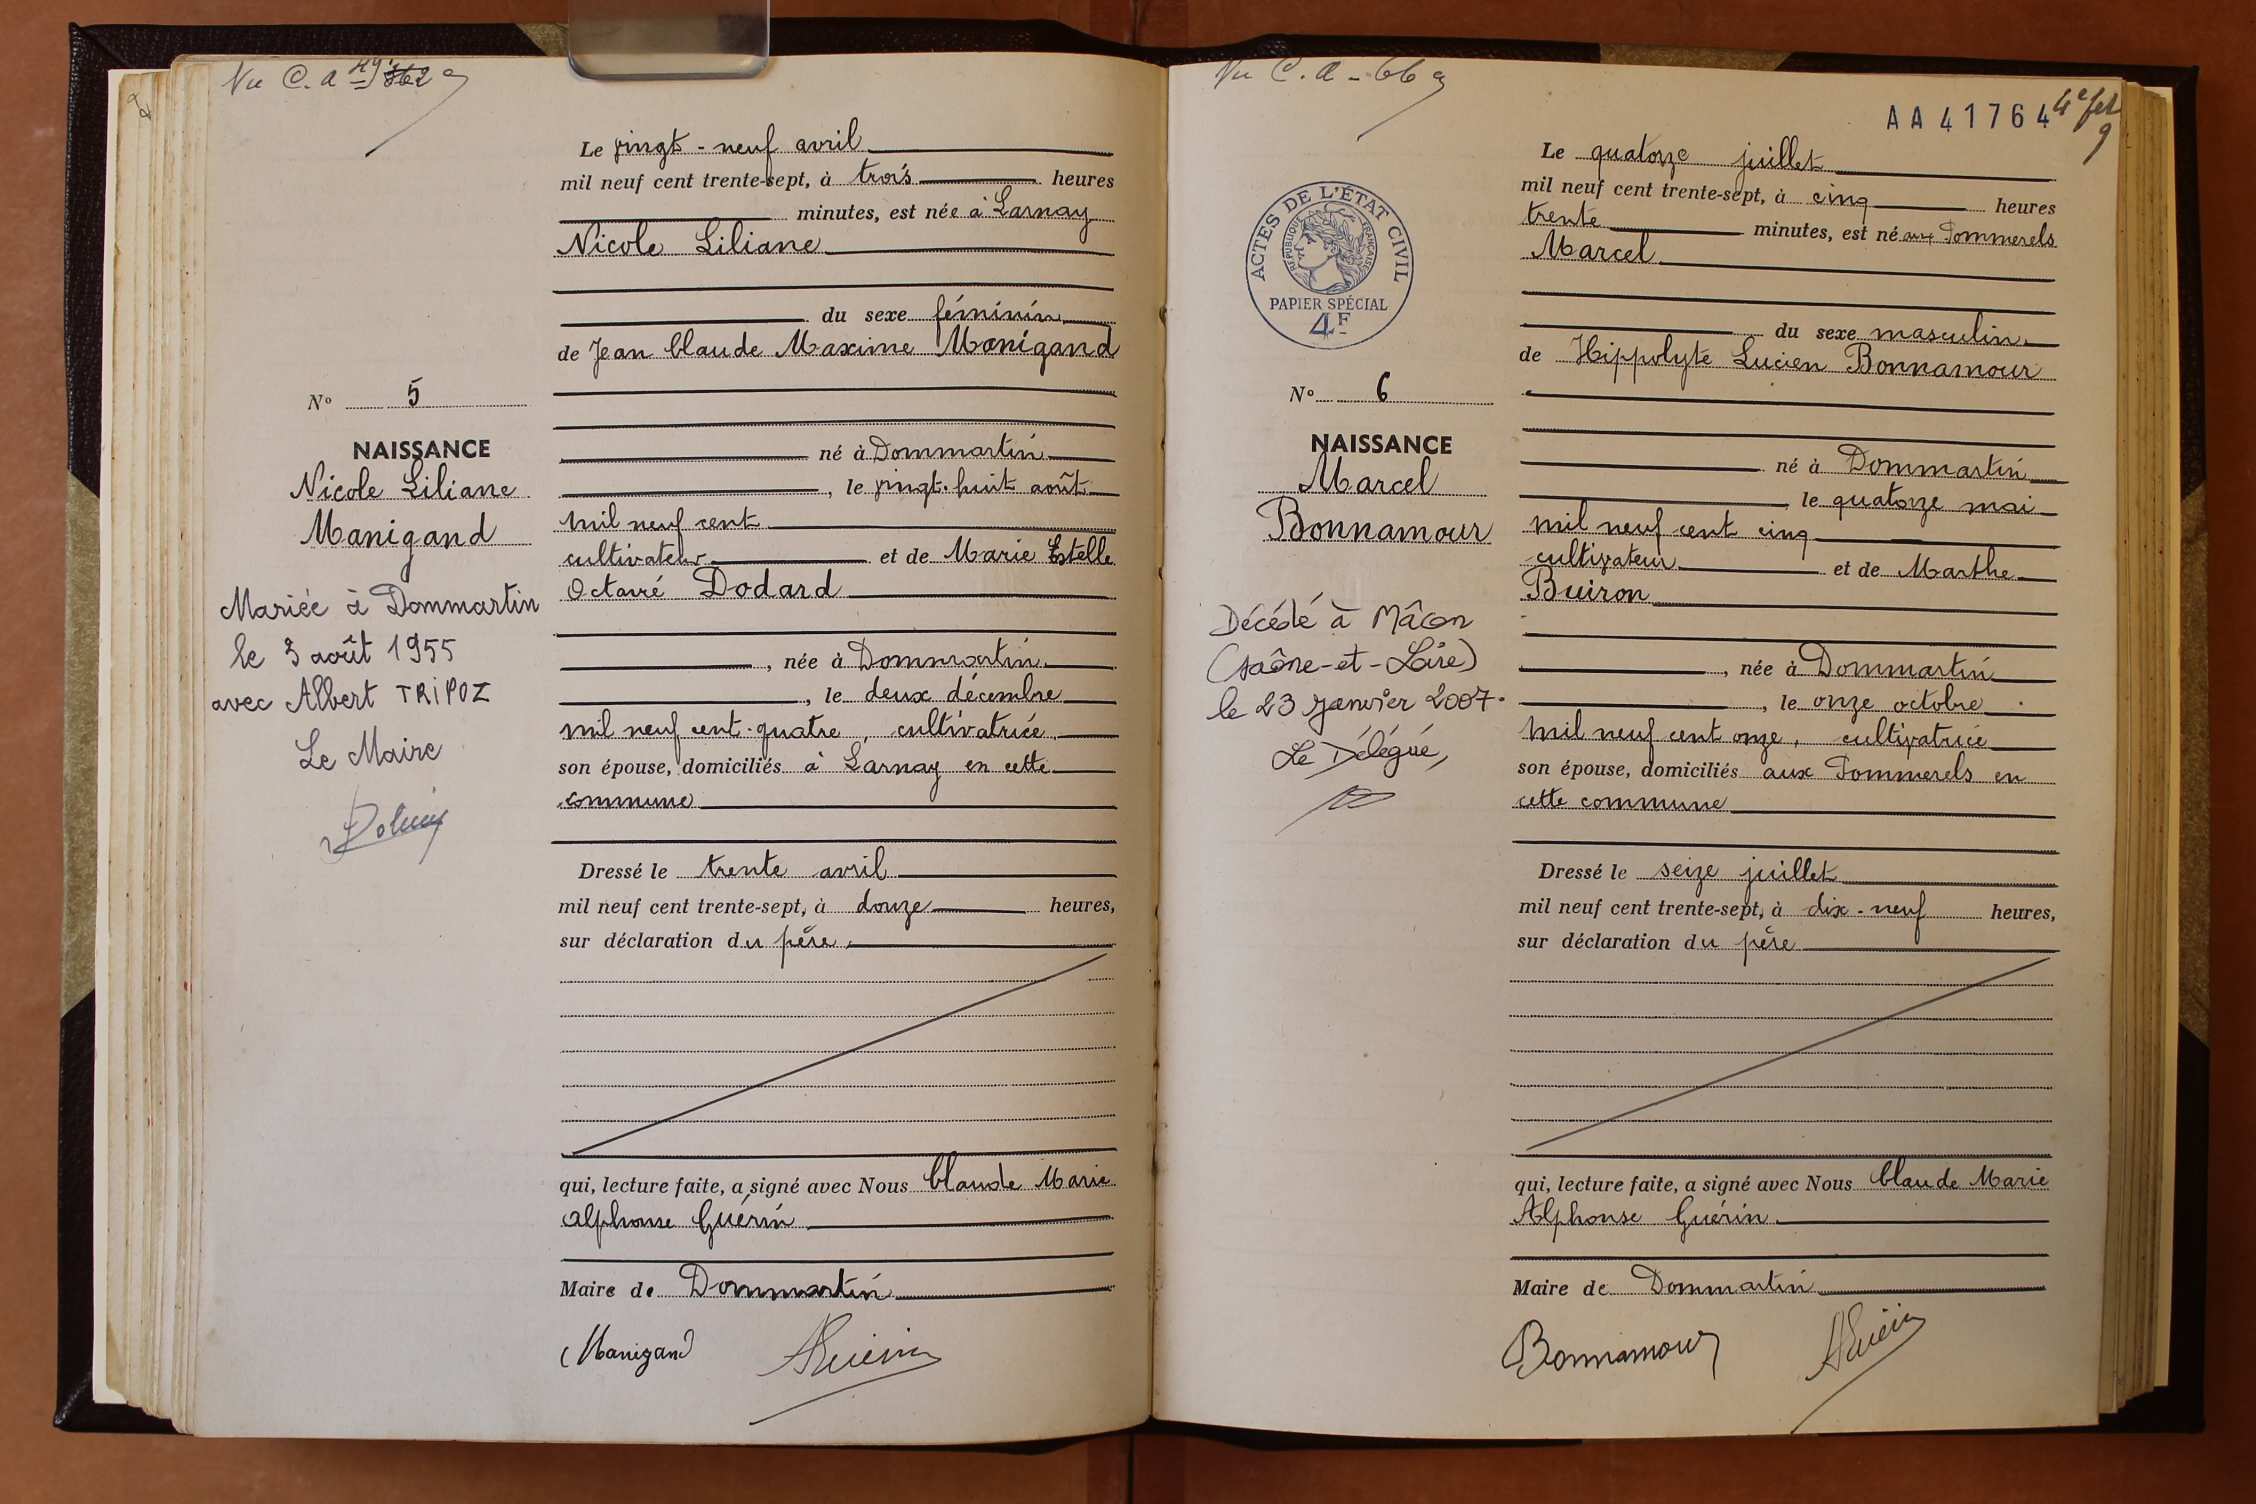 Vu C. a
Le vingt-neuf avril
mil neuf cent trente-sept, à trois heures
minutes, est née à Larnay
Nicole Liliane
du sexe féminin
de Jean Claude Maxime Manigand
né à Dommartin
, le vingt-huit août
mil neuf cent
cultivateur et de Marie Estelle
Octavie Dodard
, née à Dommartin
, le deux décembre
mil neuf cent quatre, cultivatrice,
son épouse, domiciliés à Larnay en cette
commune
Dressé le trente avril
mil neuf cent trente-sept, à douze heures,
sur déclaration du père,
qui, lecture faite, a signé avec Nous Claude Marie
Alphonse Guérin
Maire de Dommartin
Manigand Guérin
No 5
NAISSANCE
Nicole Liliane
Manigand
Mariée à Dommartin
le 3 août 1955
avec Albert TRIPOZ
Le Maire
Vu C. a - 66
AA41764
4e fet
9
ACTES DE L'ÉTAT CIVIL
RÉPUBLIQUE FRANÇAISE
PAPIER SPÉCIAL
4F
No 6
NAISSANCE
Marcel
Bonnamour
Décédé à Mâcon
(Saône-et-Loire)
le 23 Janvier 2007.
Le Délégué,
Le quatorze juillet
mil neuf cent trente-sept, à cinq heures
trente minutes, est né aux Pommerels
Marcel
du sexe masculin
de Hippolyte Lucien Bonnamour
né à Dommartin
, le quatorze mai
mil neuf cent cinq
cultivateur et de Marthe
Buiron
, née à Dommartin
, le onze octobre
mil neuf cent onze, cultivatrice
son épouse, domiciliés aux Pommerels en
cette commune
Dressé le seize juillet
mil neuf cent trente-sept, à dix-neuf heures,
sur déclaration du père
qui, lecture faite, a signé avec Nous Claude Marie
Alphonse Guérin
Maire de Dommartin
Bonnamour Guérin